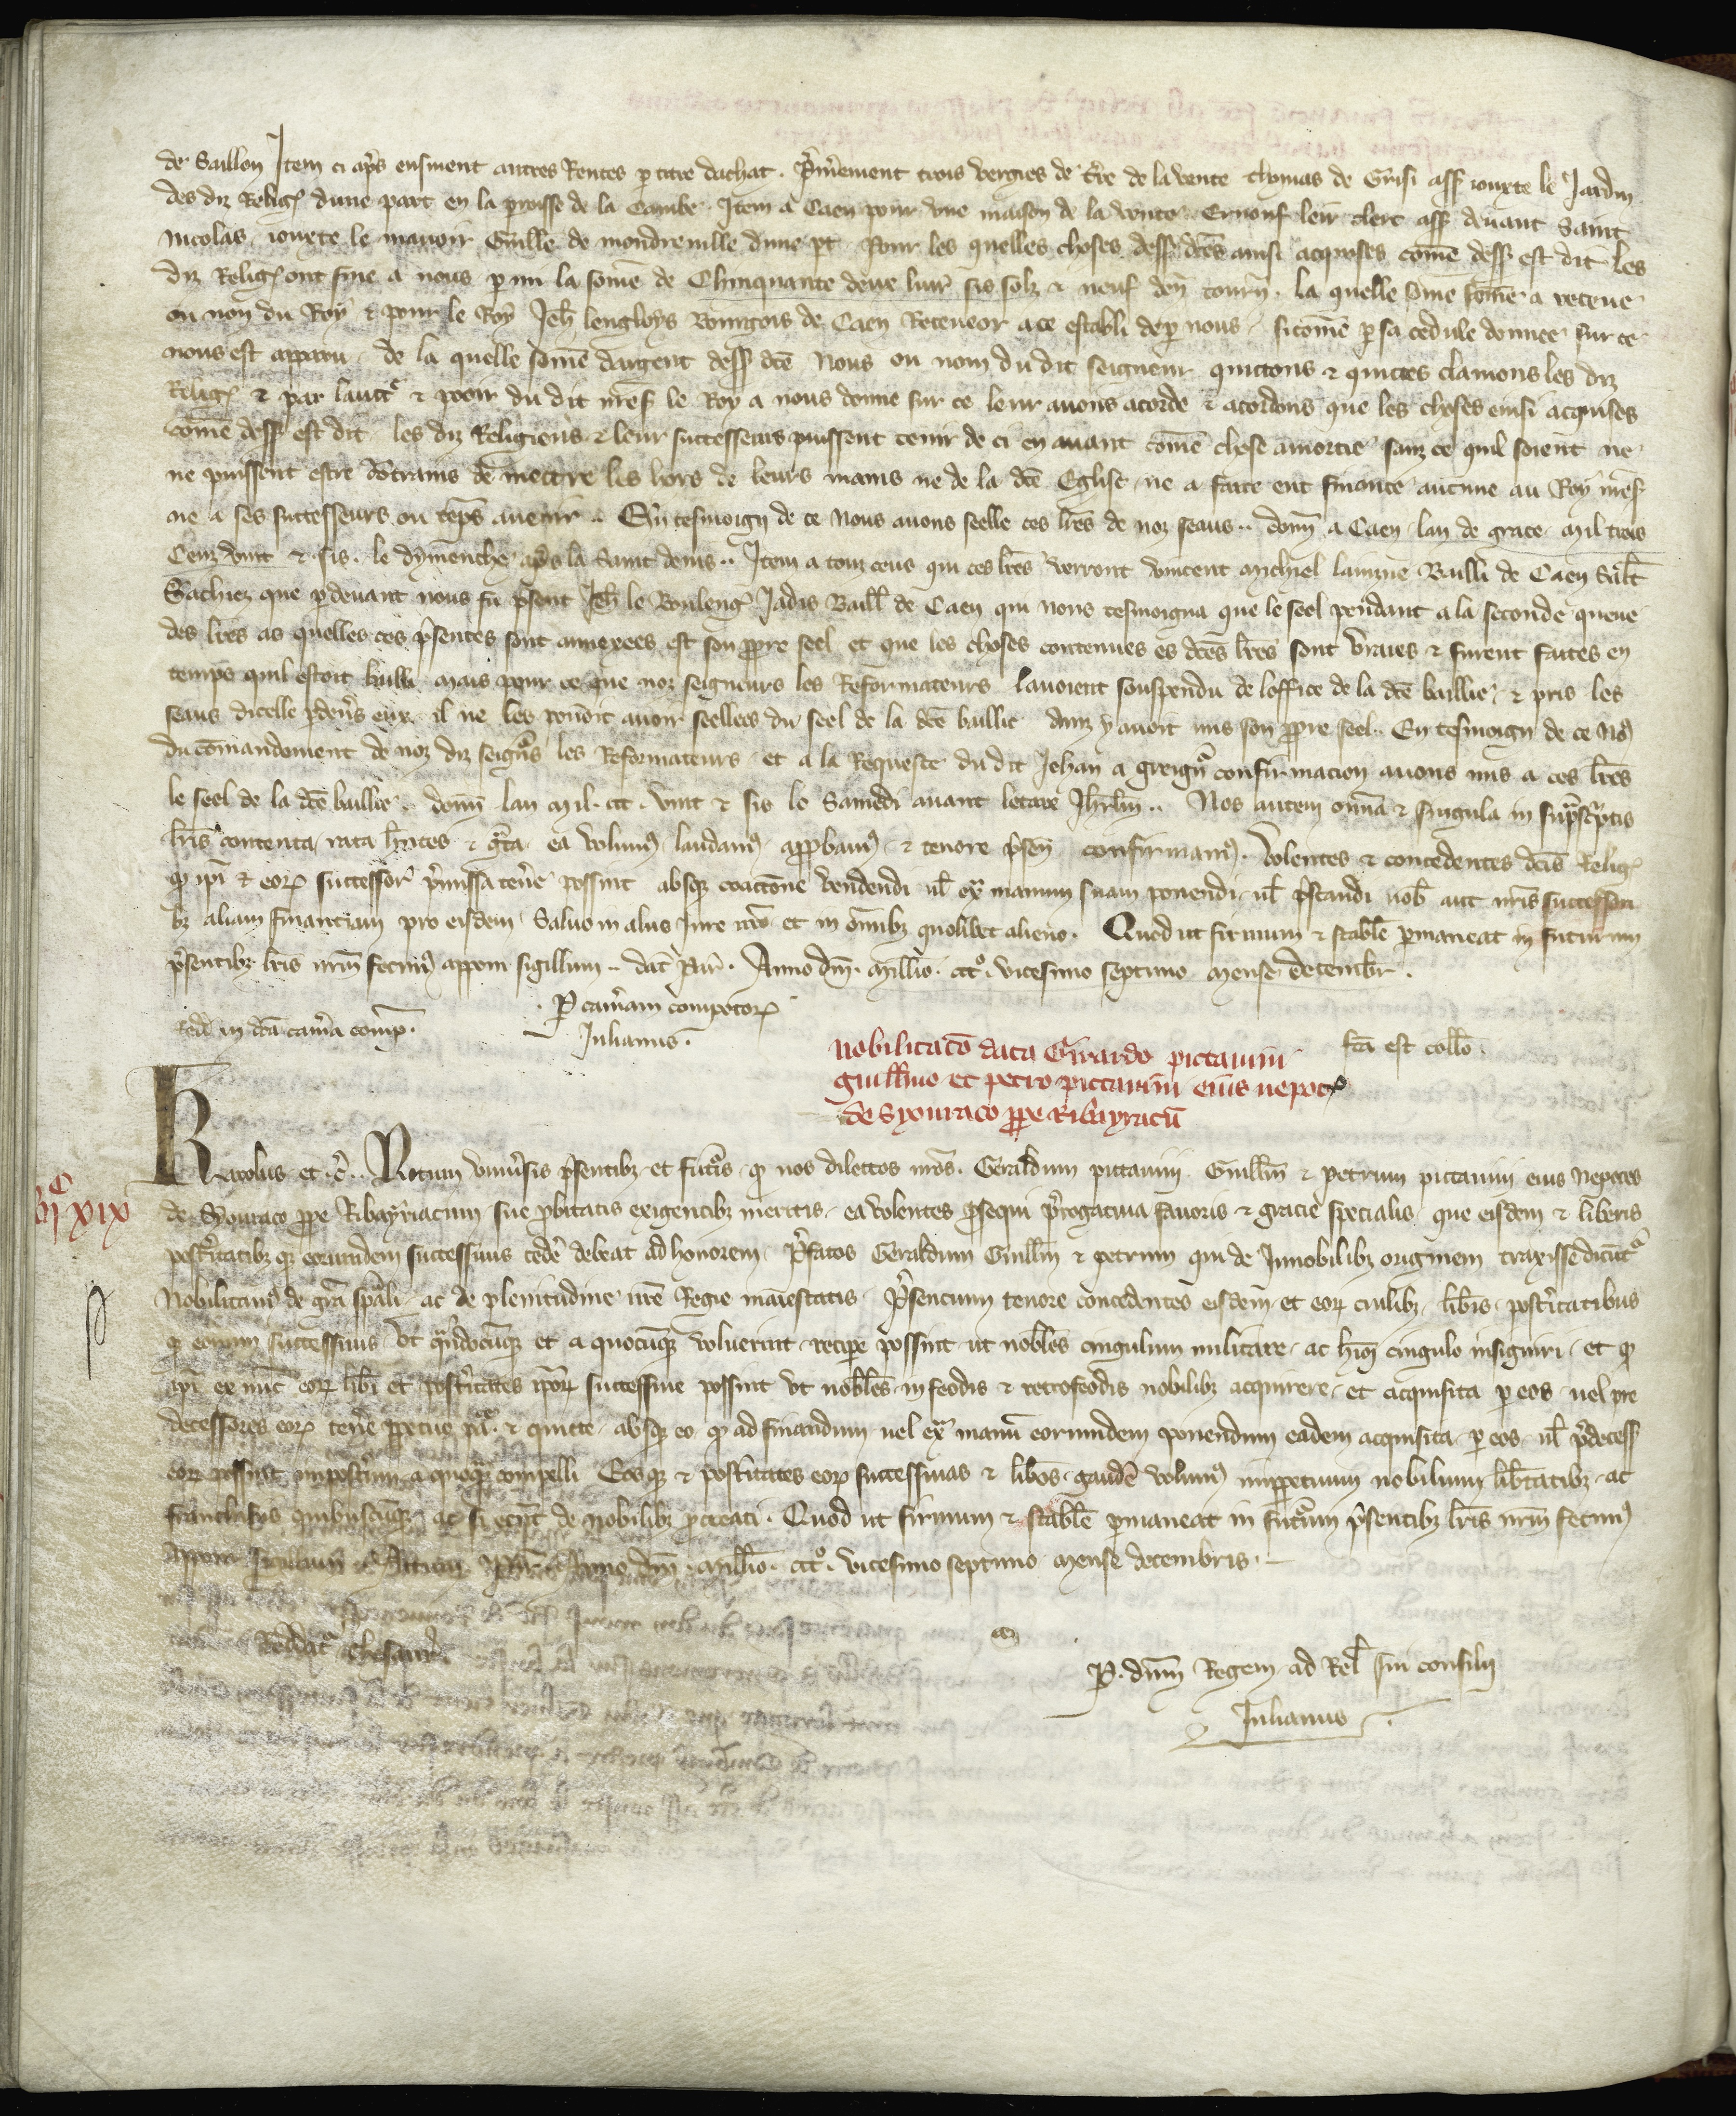 de Saillon Item ci apres ensiuent autres Rentes p titre dachat . p'mierement trois vergies de t're de la vente thomas de Guisi ass iouxte le Jardin
des diz Relig' dune part en la p'roisse de la Cambe . Item a Caen pour vne maison de la vente Ernouf leur clerc ass deuant Saint
nicolas iouxte le manoir Guille de mondreuille dune pt . Pour les quelles choses dess dctes ainsi acquises come dess est dit les
diz Relig' ont fine a nous p mi la some de Chinquante deux liur sis solz & neuf den' tourn' . la quelle some a receue
ou non du Roy & pour le Roy Jeh' lengloys Bourgois de Caen Receueor a ce establi de p nous sicome p sa cedule donnee sur ce
nous est apparu . de la quelle some dargent dess dcte Nous ou nom du dit seigneur quittons & quictes clamons les diz
Relig' & par lauctte & pooir du dit nres' le Roy a nous donne sur ce leur auons acorde & acordons que les choses einsi acquises
come dess est dit les diz Religieus & leur successeurs puissent tenir de ci en auant come chose amortie sanz ce quil soient ne
ne puissent estre c'trains de mettre les hors de leurs mains ne de la dcte Eglise ne a faire ent finance aucune au Roy nres'
ne a ses successeurs ou teps auenir .. En tesmoign de ce Nous auons seelle ces lres de noz seaus .. donn a Caen lan de grace mil trois
Cenz vint & sis . le dymenche apres la Saint denis .. Item a touz ceus qui ces lres verront vincent Michiel Bailli de Caen Salt
Sachiez que p deuant nous fu p'sent Jeh' le Bouleng' Jadis Baill' de Caen qui nous tesmoigna que le seel pendant a la seconde queue
des lres as quelles ces p'sentes sont annexees est son ppre seel et que les choses contenues es dctes lres sont vraies & furent faites en
temps quil estoit bailli mais pour ce que noz seigneurs les Reformateurs lauoient souspendu de loffice de la dcte baillie & pris les
seaus dicelle p deu's eux il ne les pouoit auoir seellees du seel de la dcte baillie ainz y auoit mis son ppre seel .. En tesmoign de ce Nos
du comandement de noz diz seign's les Reformateurs et a la Requeste du dit Jehan a greign' confirmacion auons mis a ces lres
le seel de la dcte baillie .. donn lan mil . ccc . vint & sis le Samedi auant letare Jhrlm .. Nos autem omnia & singula in sup'sc'ptis
lris contenta rata h'ntes & g'ta ea volum' laudam' approbam' & tenore p'sen' confirmam' . Volentes & concedentes dcis Relig'
q' ip'i & eor' successor' p'missa ten'e possint absq' coactione vendendi ul' ex' manum suam ponendi ul' p'standi nob' aut nris successori
b3 aliam financiam pro eisdem Saluo in aliis Jure nro et in omib3 quolibet alieno . Quod ut firmum & stabile p'maneat in futurum
p'sentib3 lris nrm fecim' apponi sigillum .. dat' Par' . Anno dni . millio . ccc° . vicesimo septimo mense decembr' .
. P cam'am compotor'
Julianus .
Redd' in dca cam'a comp' .
fca est collo .
nobilitaco data Girardo pictauini
guillmo et petro pictauini eius nepot'
de Syouraco ppe Ribayracu
Karolus et c' .. Notum vniu'sis p'sentib3 et futuris q' nos dilectos nros . Geraldum pictauini . Guillm & Petrum pictauini eius Nepotes
de Syouraco ppe Ribayriacum sue p'bitatis exigentib3 meritis ea volentes p'sequi p'rogatiua fauoris & gracie specialis que eisdem & liberis
post'itatib3 q' eorumdem successiuis ced'e debeat ad honorem p'fatos Geraldum Guillm & petrum qui de Innobilib3 originem traxisse dicut'
Nobilitam' de gra sp'ali ac de plenitudine nre Regie maiestatis p'sencium tenore concedentes eisdem et eor' liberis post'itatibus
q' eorum successiuis vt q'ndocumq' et a quocumq' voluerint recipe possint ut nobiles cingulum militare ac hui' cingulo insigniri et q'
ip'i ex nunc eor' lib'i et post'itates ipor' successiue possint vt nobiles in feodis & retrofeodis nobilib3 acquirere et acquisita p eos uel pre
decessores eor' ten'e ppetue & quitte absq' eo q' ad finandum uel ex' manu eorumdem ponendum eadem acquisita p eos ul' p'decess
eor' possint impost'um a quoq' compelli Eosq' & post'itates eor' successiuas & lib'os gaud'e volum' imppetuum nobilium lib'tatib3 ac
franchisiis quibuscumq' ac si essent de nobilib3 p'creati . Quod ut firmum & stabile p'maneat in futurum p'sentib3 lris nrm fecim'
apponi sigillum Anno dni . millio . ccc° . vicesimo septimo mense decembris .
Reddat' thesaur'
P . dnm Regem ad Rel' sui consilii
Julianus .
vi c xix